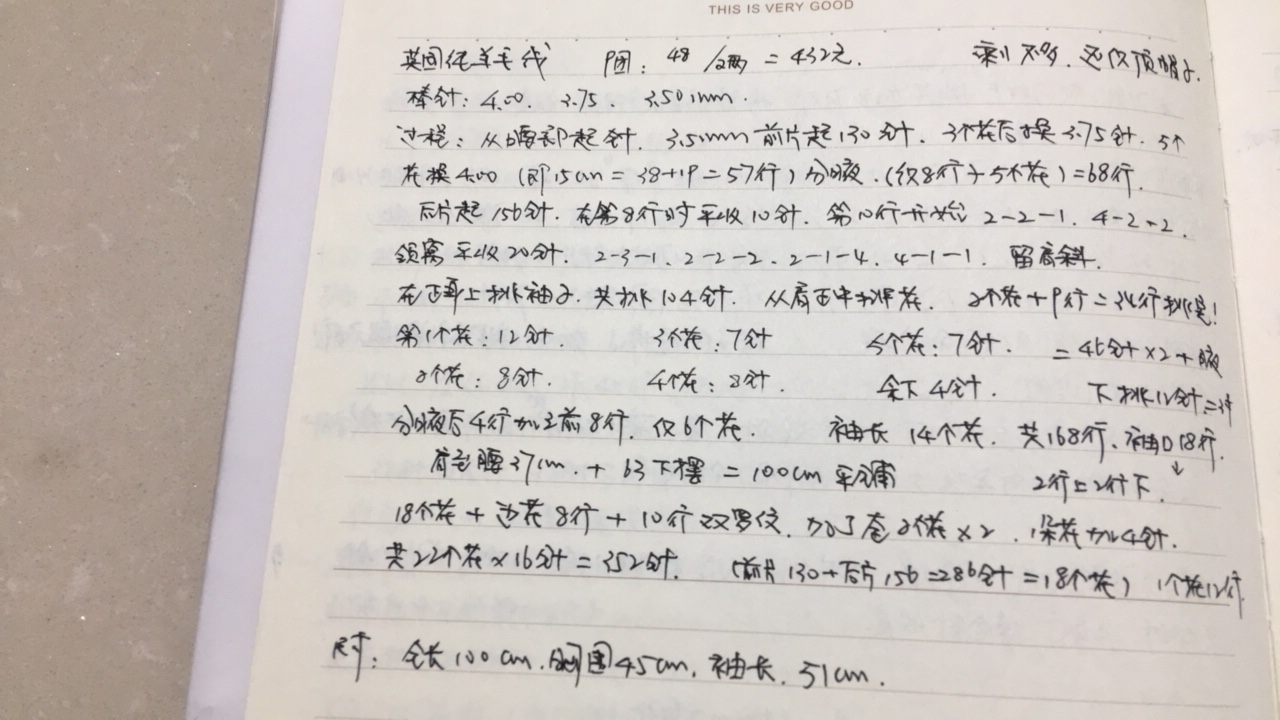 THIS IS VERY GOOD
英国纯羊毛线 9团:48/2两=432元. 剩不多.还仅顶帽子.
棒针:4.00. 3.75 3.50mm.
过程:从腰部起针. 3.5mm前片起130针. 3个花后换3.75针. 5个
花换4.00(即15cm=38+19=57行)分腋.(织8行+5个花)=68行.
后片起156针.在第8行时平收10针.第10行开始 2-2-1. 4-2-2.
领窝平收20针. 2-3-1. 2-2-2. 2-1-4. 4-1-1. 留底斜.
在正身上挑袖子.共挑104针. 从肩正中挑花. 2个花+9行=34行挑完!
第1个花:12针. 3个花:7针 5个花:7针. =46针×2+腋
2个花:8针. 4个花:8针. 余下4针. 下挑12针=
分腋后4行加之前8行.仅6个花. 袖长14个花. 共168行.袖口18行.
肩至腰37cm.+63下摆=100cm平铺 2行上2行下.
18个花+边花8行+10行双罗纹.加了左2个花×2.1朵花加4针.
共22个花×16针=352针. (前片130+后片156=286针=18个花) 1个花12行
尺寸:全长100cm.胸围45cm.袖长.51cm.